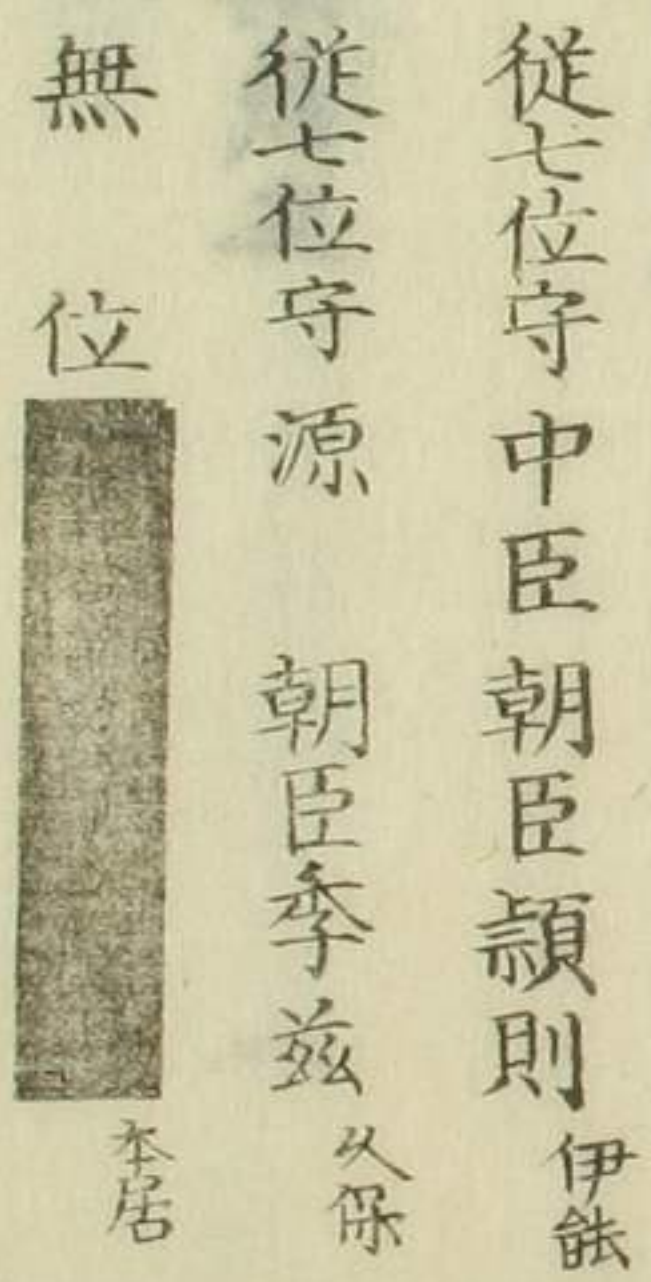 従七位守中臣朝臣頴則 伊能
従七位守源 朝臣季玆 久保
無 位 本居